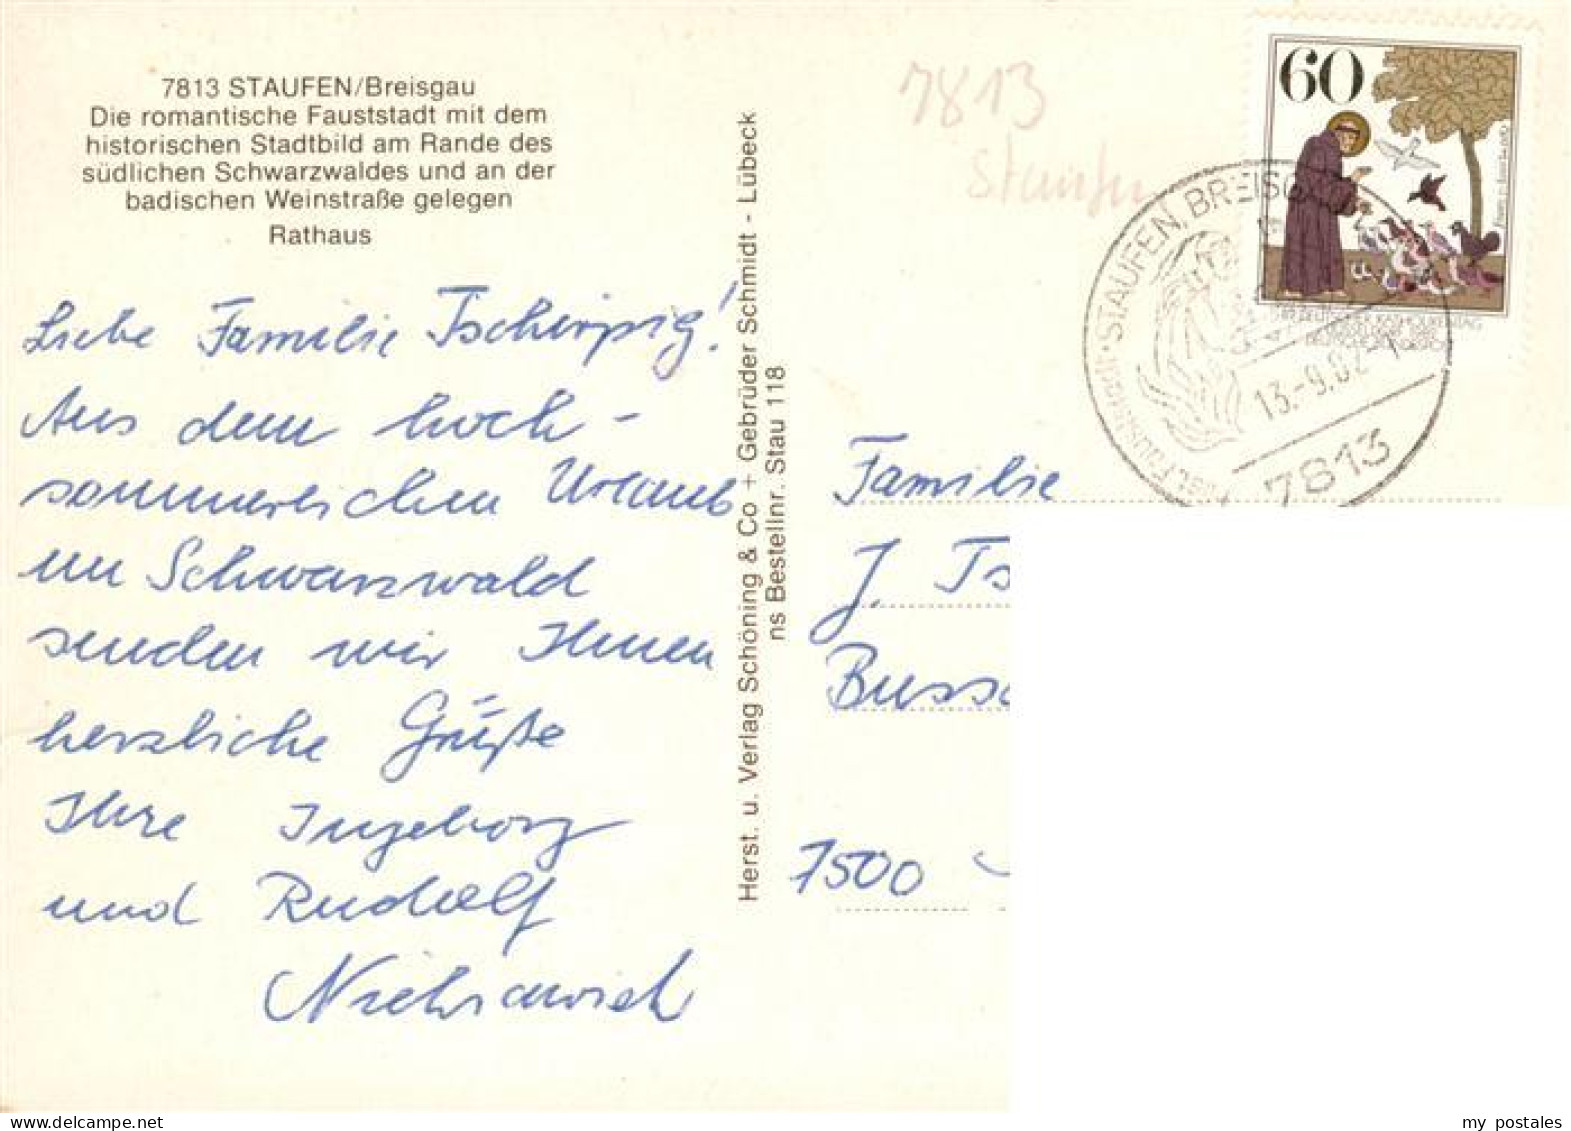 7813 STAUFEN/Breisgau
Die romantische Fauststadt mit dem
historischen Stadtbild am Rande des
südlichen Schwarzwaldes und an der
badischen Weinstraße gelegen
Rathaus
Liebe Familie Tschirpig!
Aus dem hoch-
sommerlichen Urlaub
im Schwarzwald
senden wir Ihnen
herzliche Grüße
Ihre Ingeborg
und Rudolf
Herst. u. Verlag Schöning & Co + Gebrüder Schmidt - Lübeck
ns Bestellnr. Stau 118
7813
Staufen
60
STAUFEN, BREISG
13.-9.82
7813
Familie
J. Ts
Buss
7500
my postales